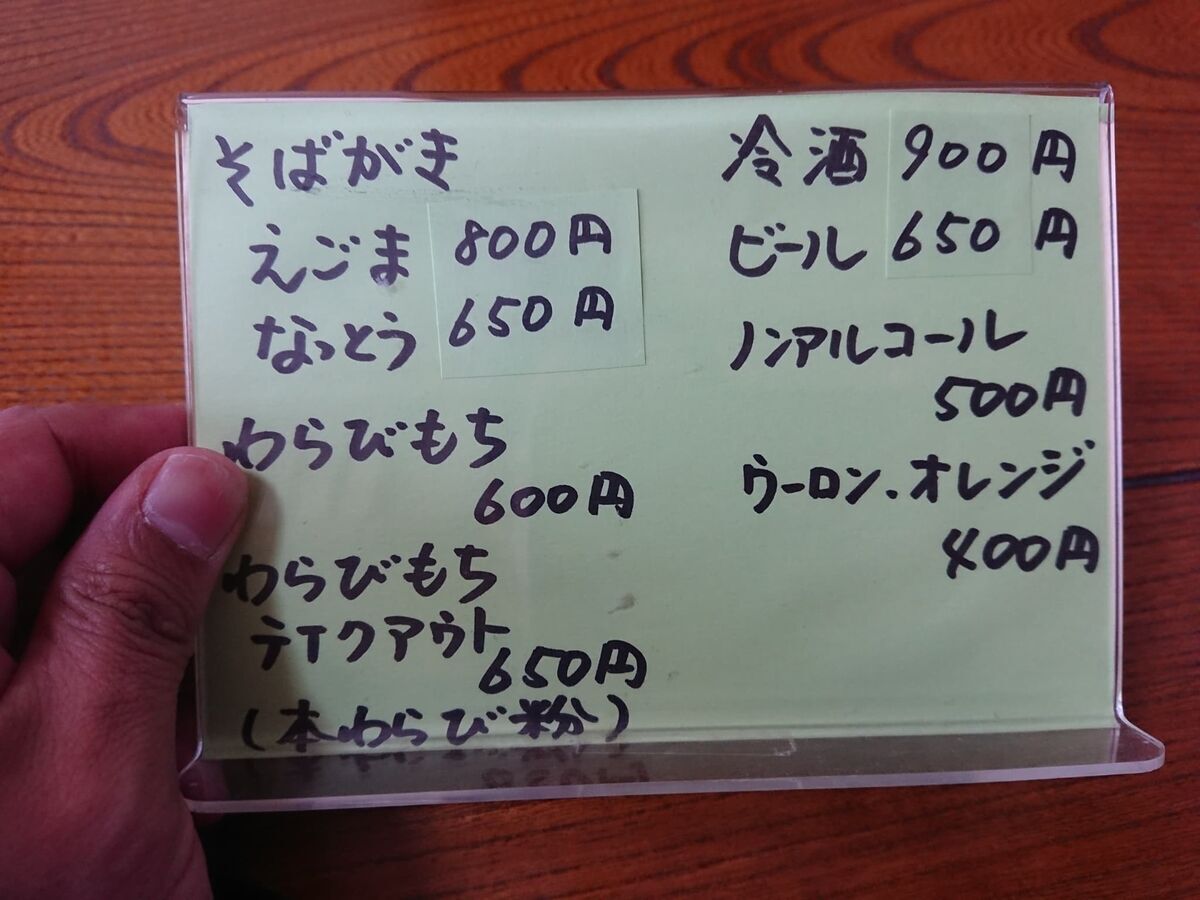 そばがき
えごま 800円
なっとう 650円
わらびもち
600円
わらびもち
テイクアウト
650円
(本わらび粉)
冷酒 900円
ビール 650円
ノンアルコール
500円
ウーロン.オレンジ
400円